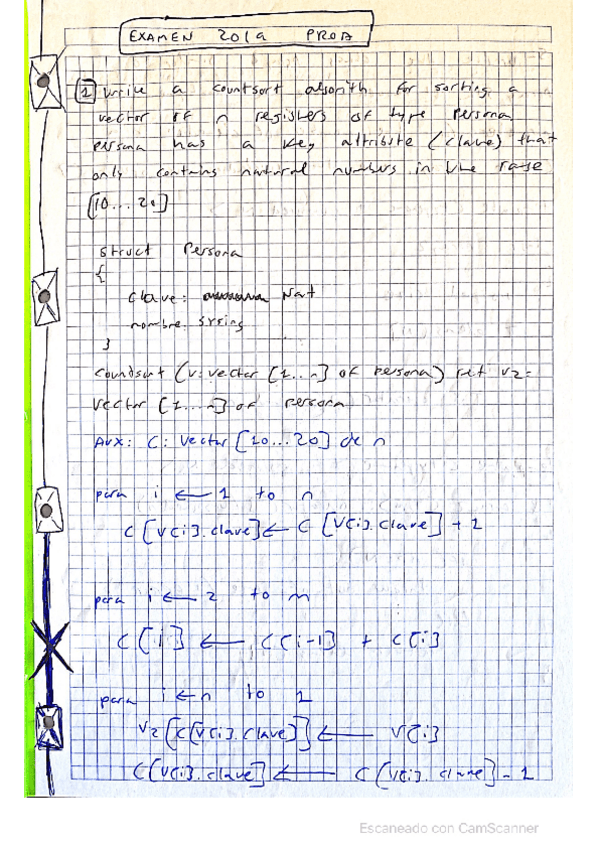 EXAMEN 2019 PROA
1 write a countsort algorith for sorting a
vector of n registers of type persona
persona has a key attribute (clave) that
only contains natural numbers in the rage
[10...20]
struct Persona
{
clave: Nat
nombre: string
}
countsort (v: vector [1...n] of persona) ret v2:
vector [1...n] of persona
Aux: C: vector [10...20] de n
para i ← 1 to n
C[V[i].clave] ← C[V[i].clave] + 1
para i ← 2 to m
C[i] ← C[i-1] + C[i]
para i ← n to 1
V2[C[V[i].clave]] ← V[i]
C[V[i].clave] ← C[V[i].clave] - 1
Escaneado con CamScanner